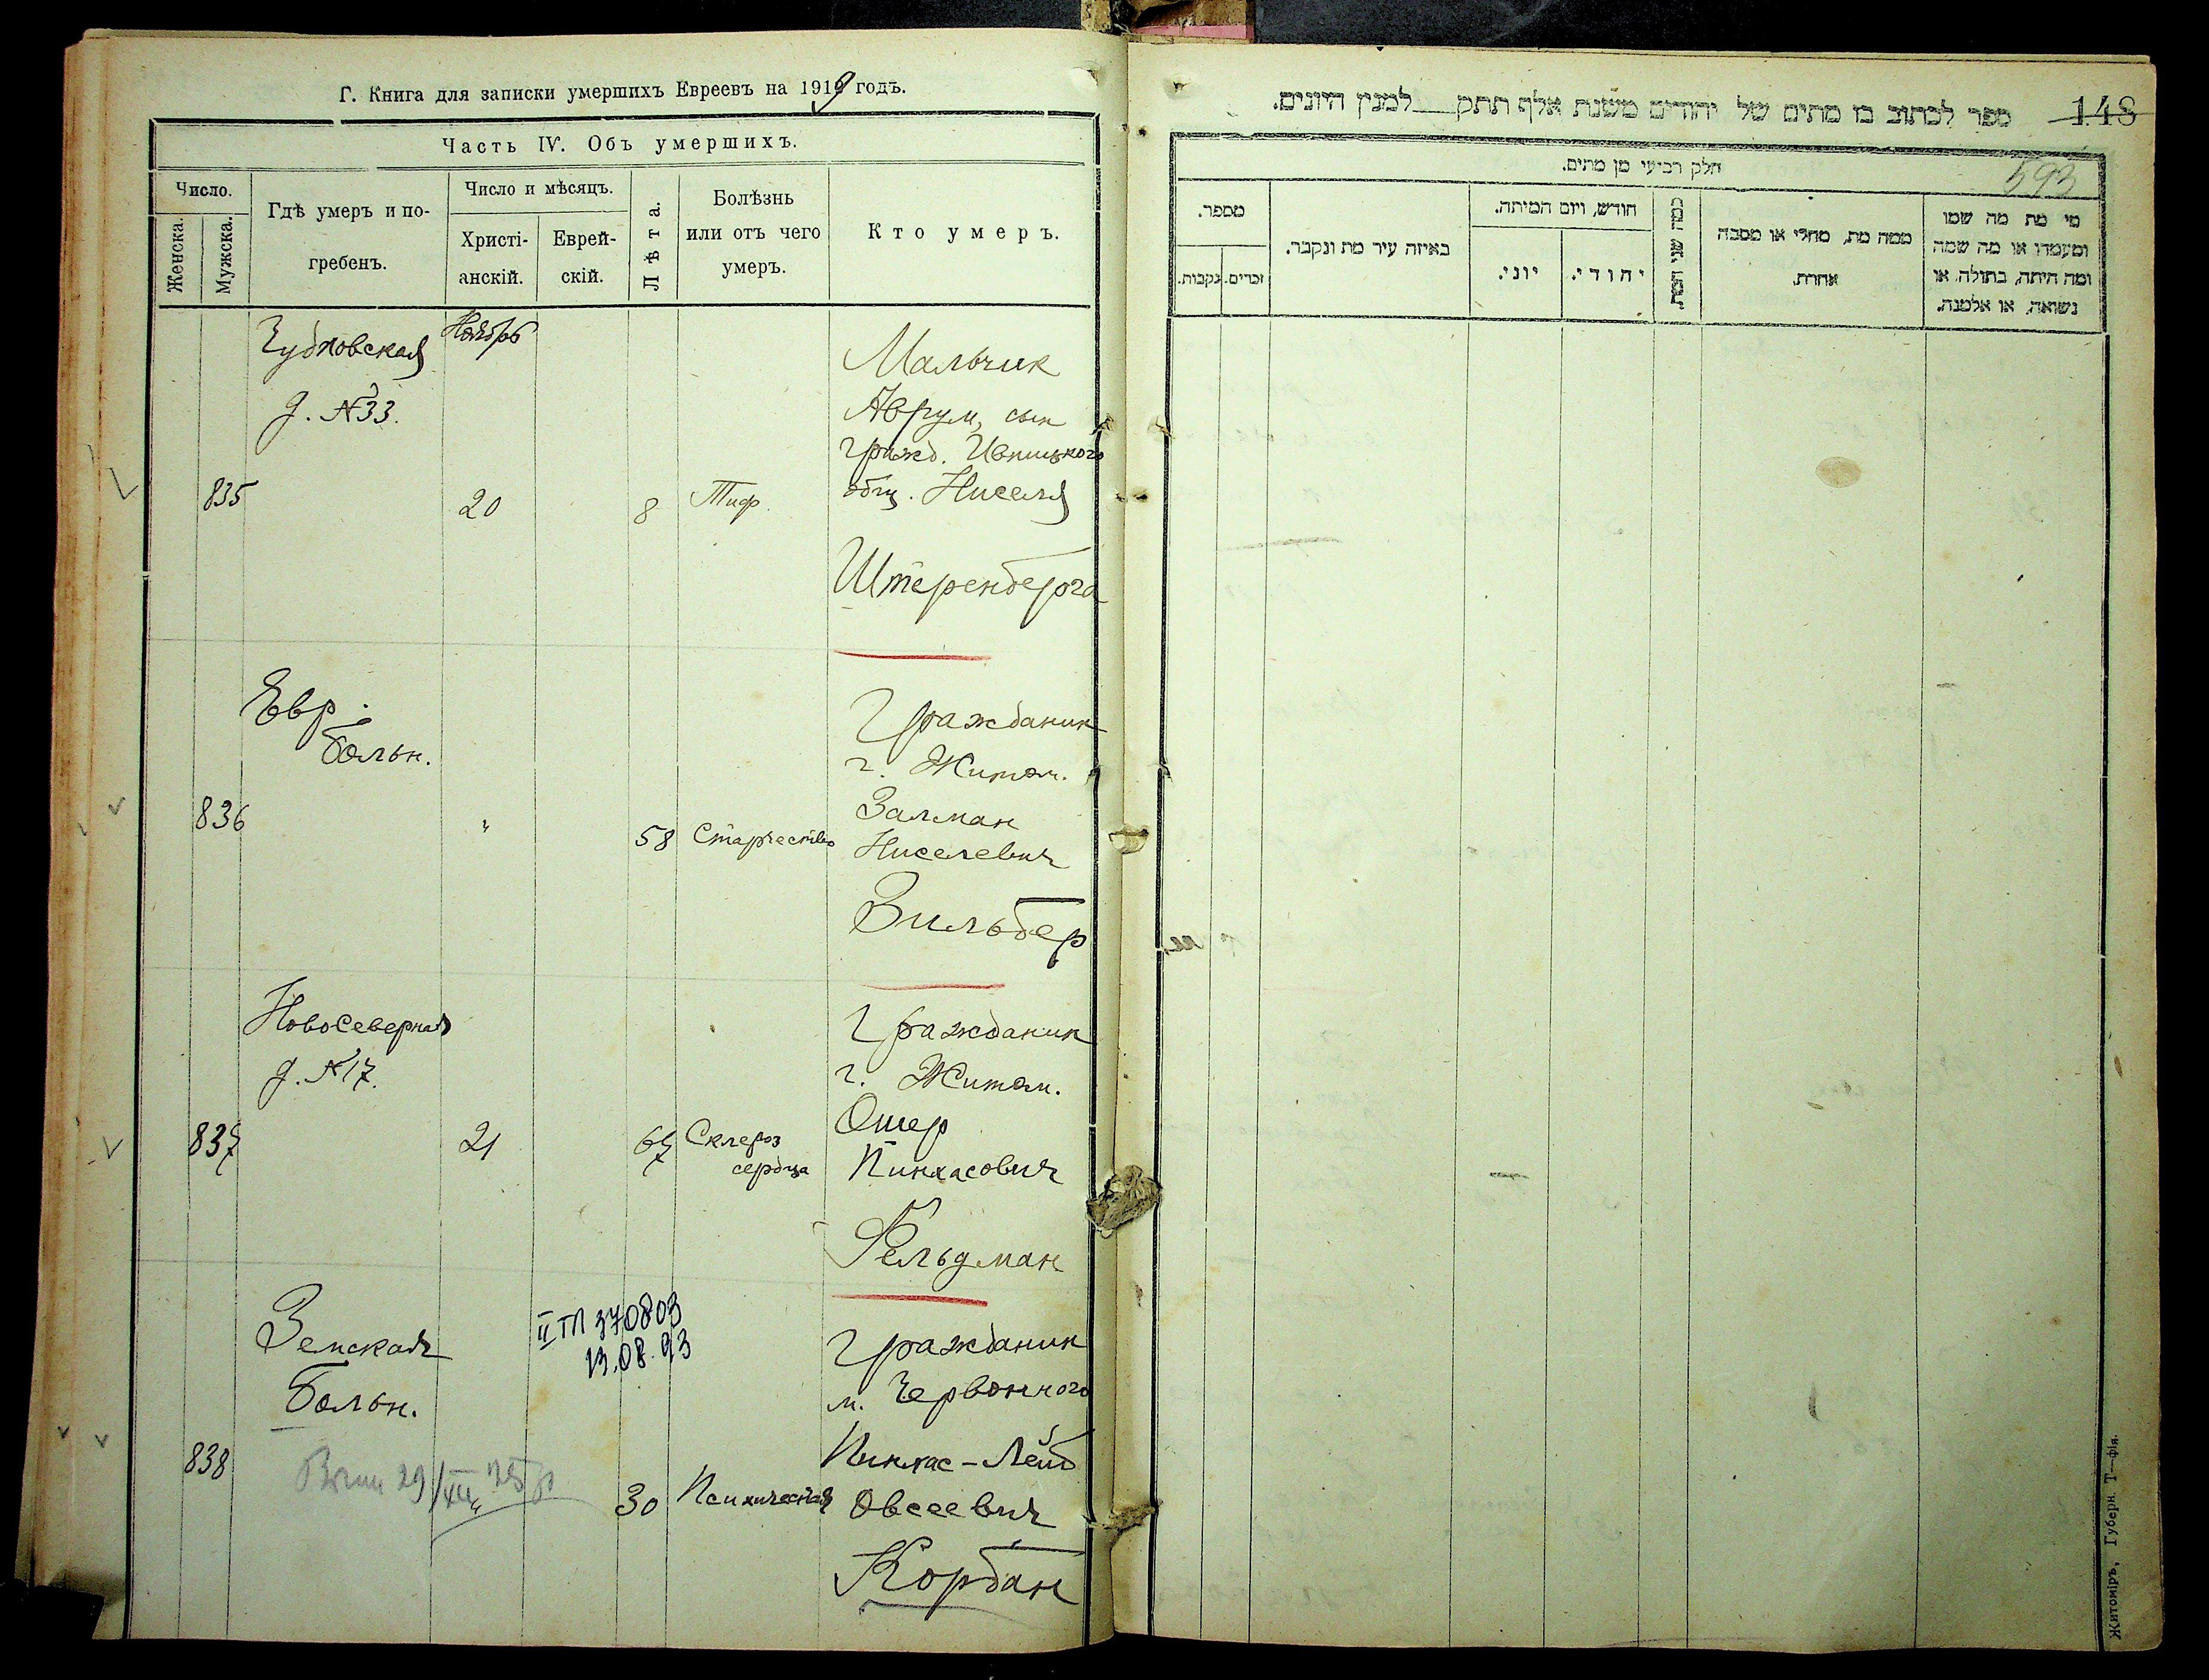 Г. Книга для записки умершихъ Евреевъ на 1919 годъ.
Часть IV. Объ умершихъ.
Число.
Женска.
Мужска.
Гдѣ умеръ и по-
гребенъ.
Число и мѣсяцъ.
Христі-
анскій.
Еврей-
скій.
Лѣта.
Болѣзнь
или отъ чего
умеръ.
Кто умеръ.
Чудновская
д. №33.
Ноябрь
835
20
8
Тиф
Мальчик
Аврум, сын
гражд. Ивницкого
общ. Ниселя
Штеренберга
Евр.
больн.
836
"
58
Старчество
Гражданин
г. Житом.
Залман
Ниселевич
Зильбер
Новосеверная
д. №17.
837
21
67
Склероз
сердца
Гражданин
г. Житом.
Ошер
Пинхасович
Фельдман
Земская
больн.
II ТП 370803
13.08.93
838
29/XII
"
30
Психическая
Гражданин
м. Червонного
Пинхас-Лейб
Овсеевич
Корбан
148
ספר לכתוב בו מתים של יהודים משנת אלף תתק למנין היונים.
593
חלק רביעי מן מתים.
מספר.
זכרים.
נקבות.
באיזה עיר מת ונקבר.
חודש, ויום המיתה.
יוני.
יהודי.
כמה שני המת
ממה מת, מחלי או מסבה
אחרת.
מי מת מה שמו
ומעמדו או מה שמה
ומה היתה, בתולה, או
נשואה, או אלמנה.
Житоміръ, Губерн. Т—фія.